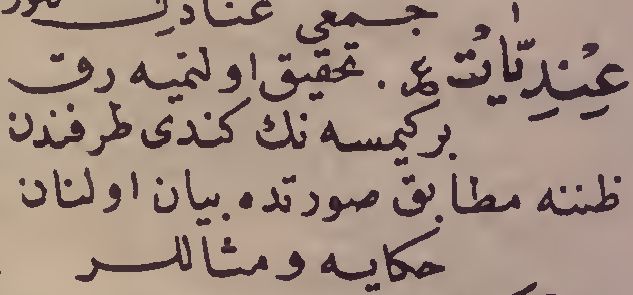 جمعى عنادل
عِنْدِيَّاتْ ع . تحقيق اولنميه رق
بركيمسه نك كندى طرفندن
ظننه مطابق صورتده بيان اولنان
حكايه و مثاللر